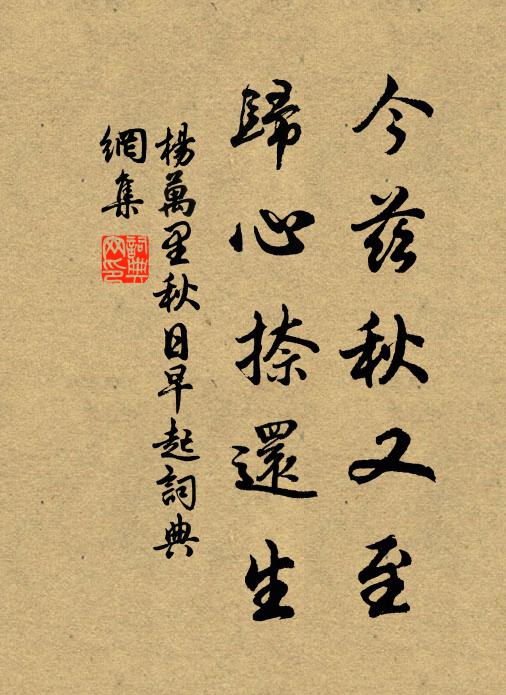 今茲秋又至
歸心捺還生
楊萬里秋日早起詞典
網集
詞典网印